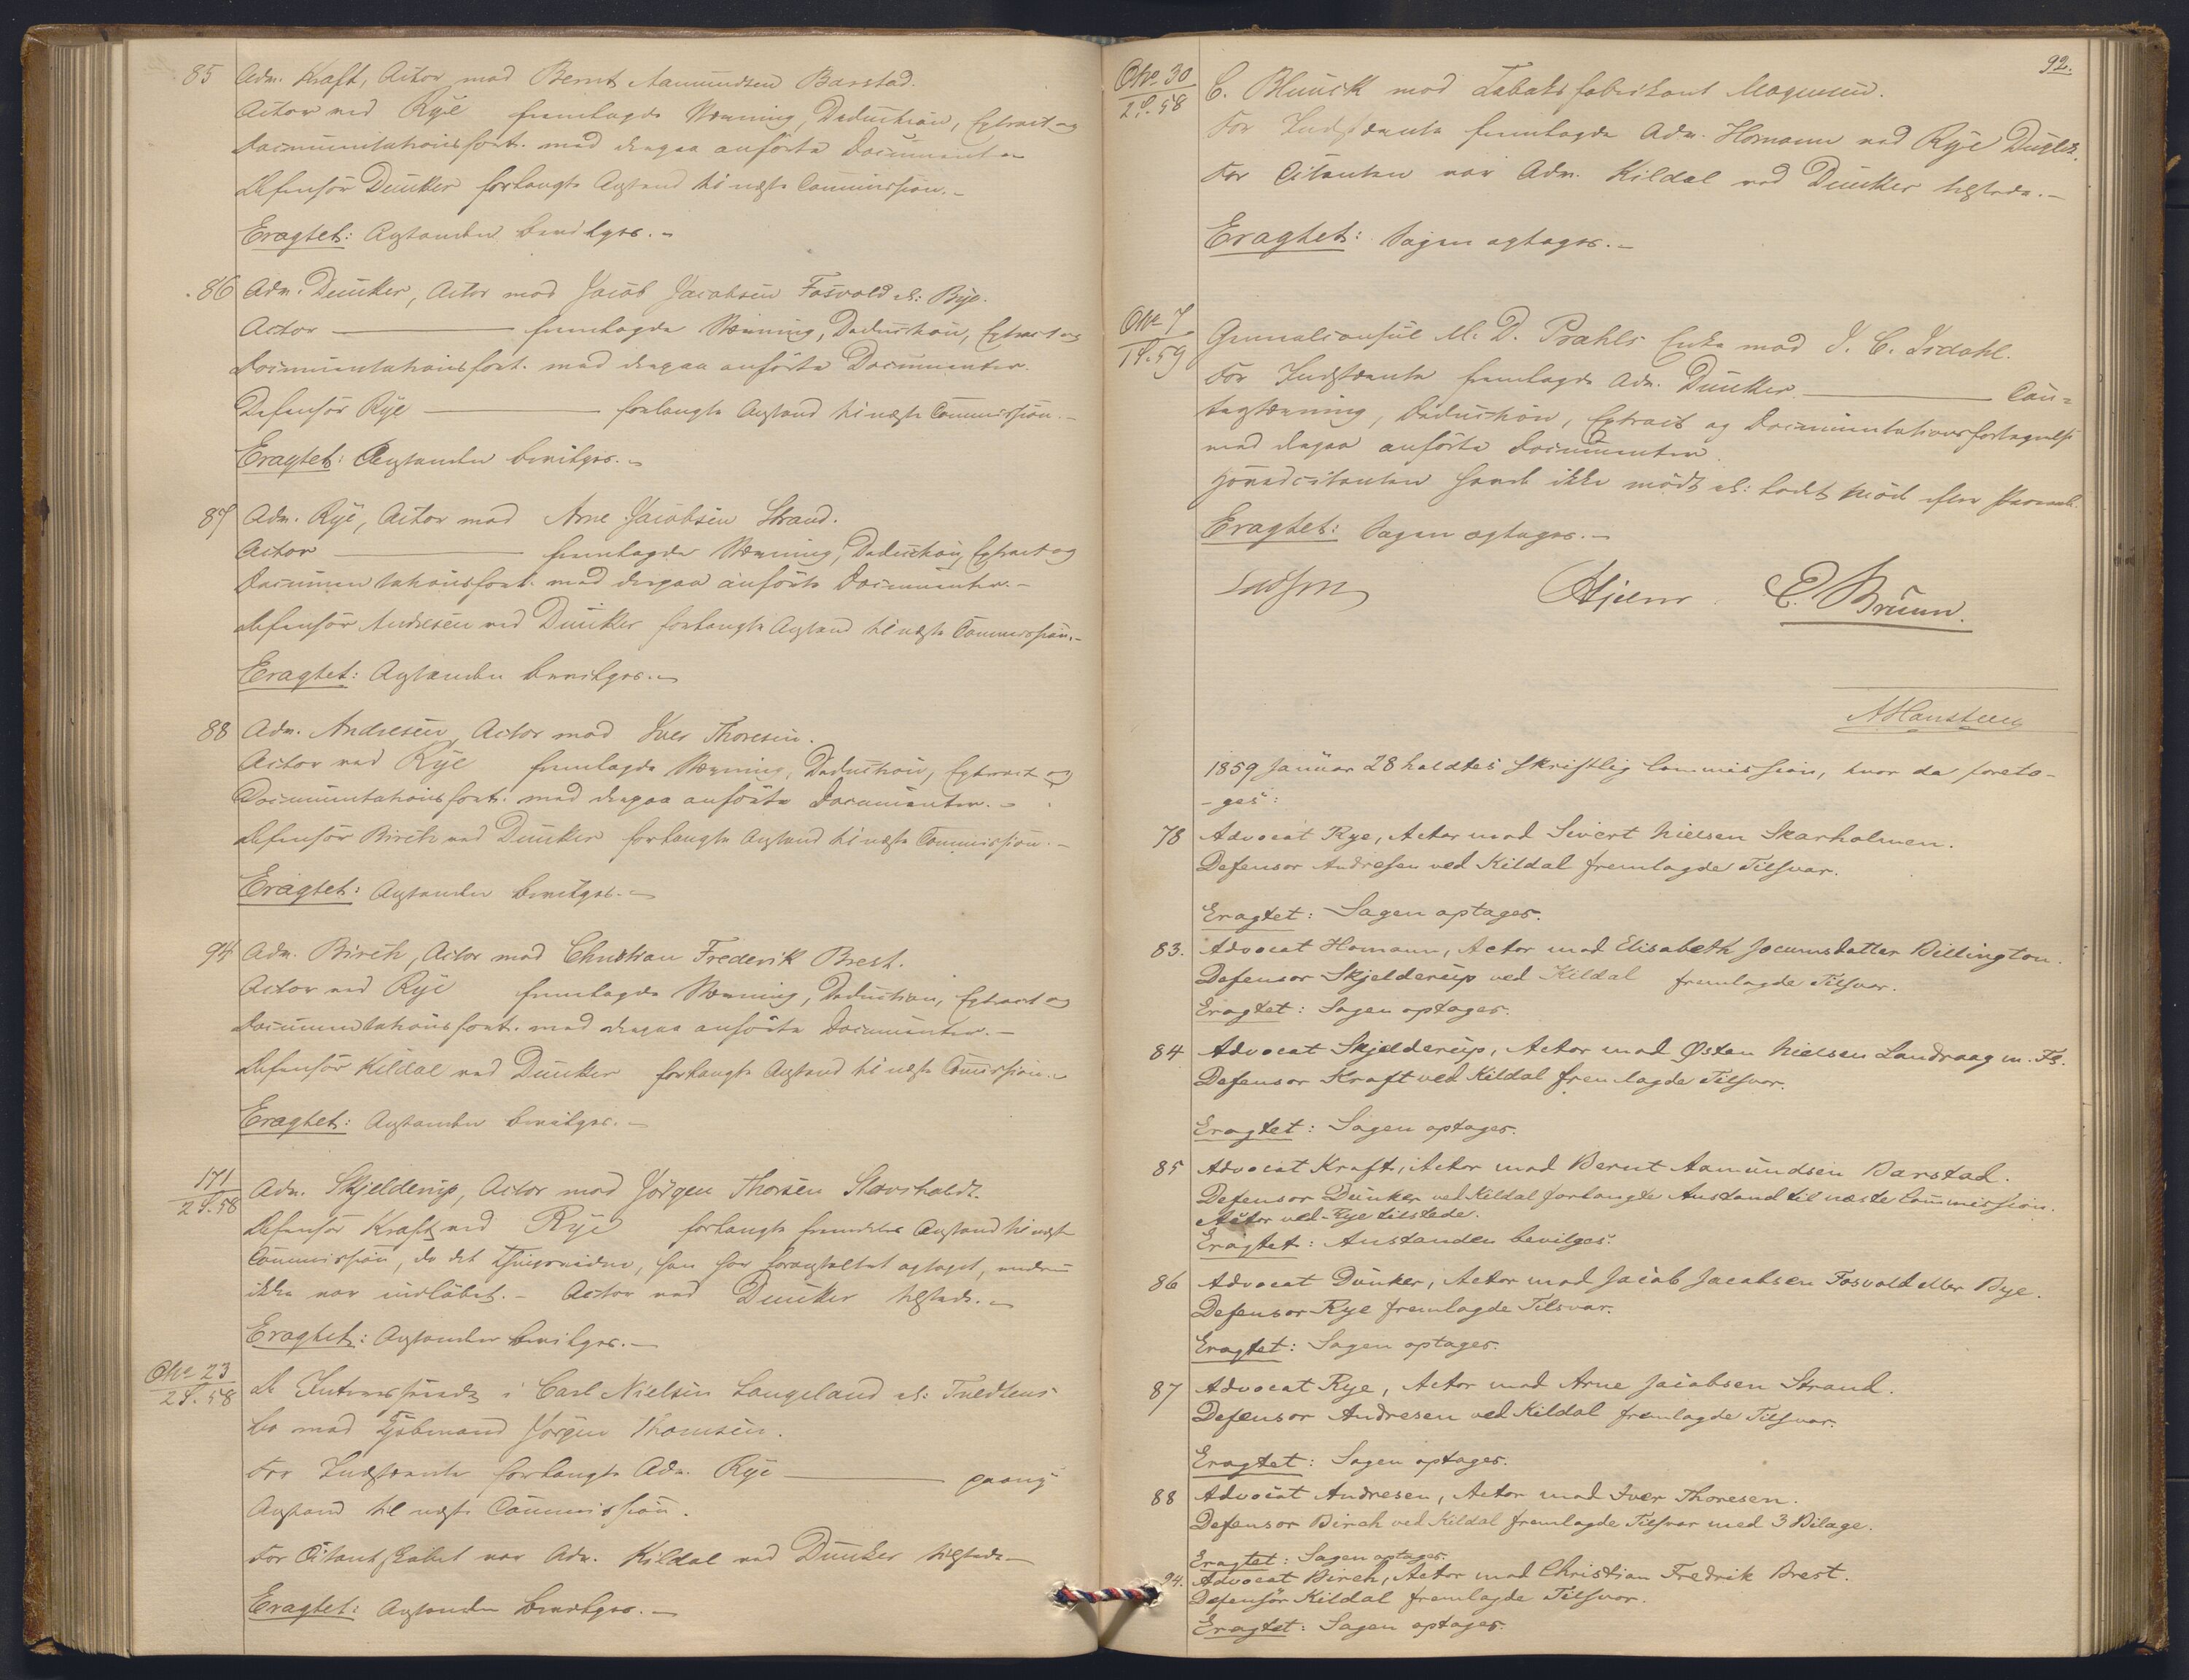 85 Adv. Kraft, Actor mod Bernt Aamundsen Barstad.
Actor ved Rye fremlagde Stævning, Deduction, Extract og
Documentationsfort. med derpaa anførte Documenter
Defensor Dunker forlangte Anstand til næste Commission.-
Eragtet: Anstanden bevilges.-
86 Adv. Dunker, Actor mod Jacob Jacobsen Fosvold el: Bye.
Actor ——— fremlagde Stævning, Deduction, Extract og
Documentationsfort. med derpaa anførte Documenter.
Defensor Rye ——— forlangte Anstand til næste Commission.-
Eragtet: Anstanden bevilges.-
87 Adv. Rye, Actor mod Arne Jacobsen Strand.
Actor ——— fremlagde Stævning, Deduction, Extract og
Documentationsfort. med derpaa anførte Documenter.-
Defensor Andresen ved Dunker forlangte Anstand til næste Commission.-
Eragtet: Anstanden bevilges.-
88 Adv. Andresen, Actor mod Iver Thoresen.
Actor ved Rye fremlagde Stævning, Deduction, Extract og
Documentationsfort. med derpaa anførte Documenter.-
Defensor Birch ved Dunker forlangte Anstand til næste Commission.-
Eragtet: Anstanden bevilges.-
94 Adv. Birch, Actor mod Christian Frederik Brest.
Actor ved Rye fremlagde Stævning, Deduction, Extract og
Documentationsfort. med derpaa anførte Documenter.-
Defensor Kildal ved Dunker forlangte Anstand til næste Commission.-
Eragtet: Anstanden bevilges.-
171/2 S. 58 Adv. Skjelderup, Actor mod Jørgen Thorsen
Defensor Kraft ved Rye forlangte fremdeles Anstand til næste
Commission, da det Thingsvidne, han har foranstaltet optaget, endnu
ikke var indløbet.- Actor ved Dunker tilstede.-
Eragtet: Anstanden bevilges.-
No 23/2 S. 58 De Interesserede i Carl Nielsen Langeland el: Tvedtens
Bo mod Kjøbmand Jørgen Thomsen.
For Indstævnte forlangte Adv. Rye ———
Anstand til næste Commission.
For Citantskabet var Adv. Kildal ved Dunker tilstede.-
Eragtet: Anstanden bevilges.-
92.
No 30/2 S. 58 C. Blunck mod Tobaksfabrikant Magnus.
For Indstævnte fremlagde Adv. Homann ved Rye Duplik.
For Citanten var Adv. Kildal ved Dunker tilstede.-
Eragtet: Sagen optages.-
No 7/1 S. 59 Generalconsul M. D. Prahls Enke mod J. C. Isdahl.
For Indstævnte fremlagde Adv. Dunker ——— Con=
trastævning, Deduction, Extract og Documentationsfortegnelse
med derpaa anførte Documenter.
Hovedcitanten havde ikke mødt el: ladet møde efter Paaraab.
Eragtet: Sagen optages.-
Hjelm. C. Bruun.
A Hansteen
1859 Januar 28 holdtes skriftlig Commission, hvor da foreto-
-ges:
78 Advocat Rye, Actor mod Sivert Nielsen Skarholmen.
Defensor Andresen ved Kildal fremlagde Tilsvar.
Eragtet: Sagen optages.
83. Advocat Homann, Actor mod Elisabeth Jocumsdatter Billington.
Defensor Skjelderup ved Kildal fremlagde Tilsvar.
Eragtet: Sagen optages.
84 Advocat Skjelderup, Actor mod Østen Nielsen Landraag m. Fl.
Defensor Kraft ved Kildal fremlagde Tilsvar.
Eragtet: Sagen optages.
85 Advocat Kraft, Actor mod Bernt Aamundsen Barstad.
Defensor Dunker ved Kildal forlangte Anstand til næste Commission.
Actor ved Rye tilstede.
Eragtet: Anstanden bevilges.
86 Advocat Dunker, Actor mod Jacob Jacobsen Fosvold eller Bye.
Defensor Rye fremlagde Tilsvar.
Eragtet: Sagen optages.
87 Advocat Rye, Actor mod Arne Jacobsen Strand.
Defensor Andresen ved Kildal fremlagde Tilsvar.
Eragtet: Sagen optages.
88 Advocat Andresen, Actor mod Iver Thoresen.
Defensor Birch ved Kildal fremlagde Tilsvar med 3 Bilage.
Eragtet: Sagen optages.
94. Advocat Birch, Actor mod Christian Fredrik Brest.
Defensor Kildal fremlagde Tilsvar.
Eragtet: Sagen optages.